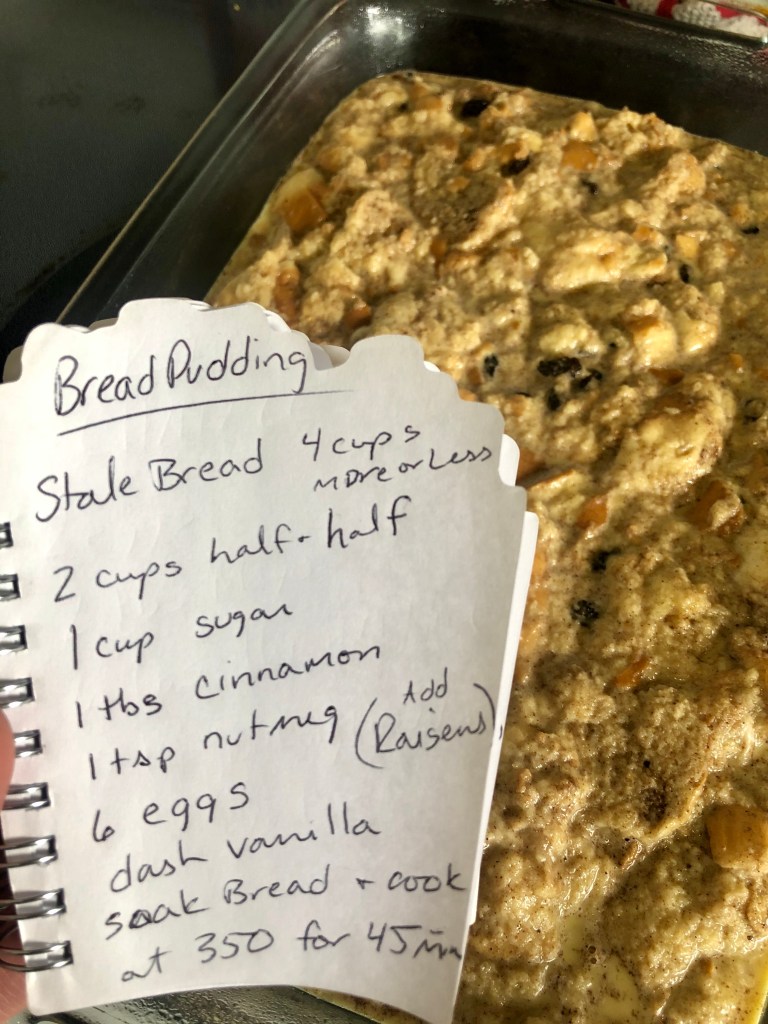 Bread Pudding
Stale Bread 4 cups
more or Less
2 cups half + half
1 cup sugar
1 tbs cinnamon
1 tsp nutmeg (Add
Raisens)
6 eggs
dash vanilla
soak Bread + cook
at 350 for 45 min